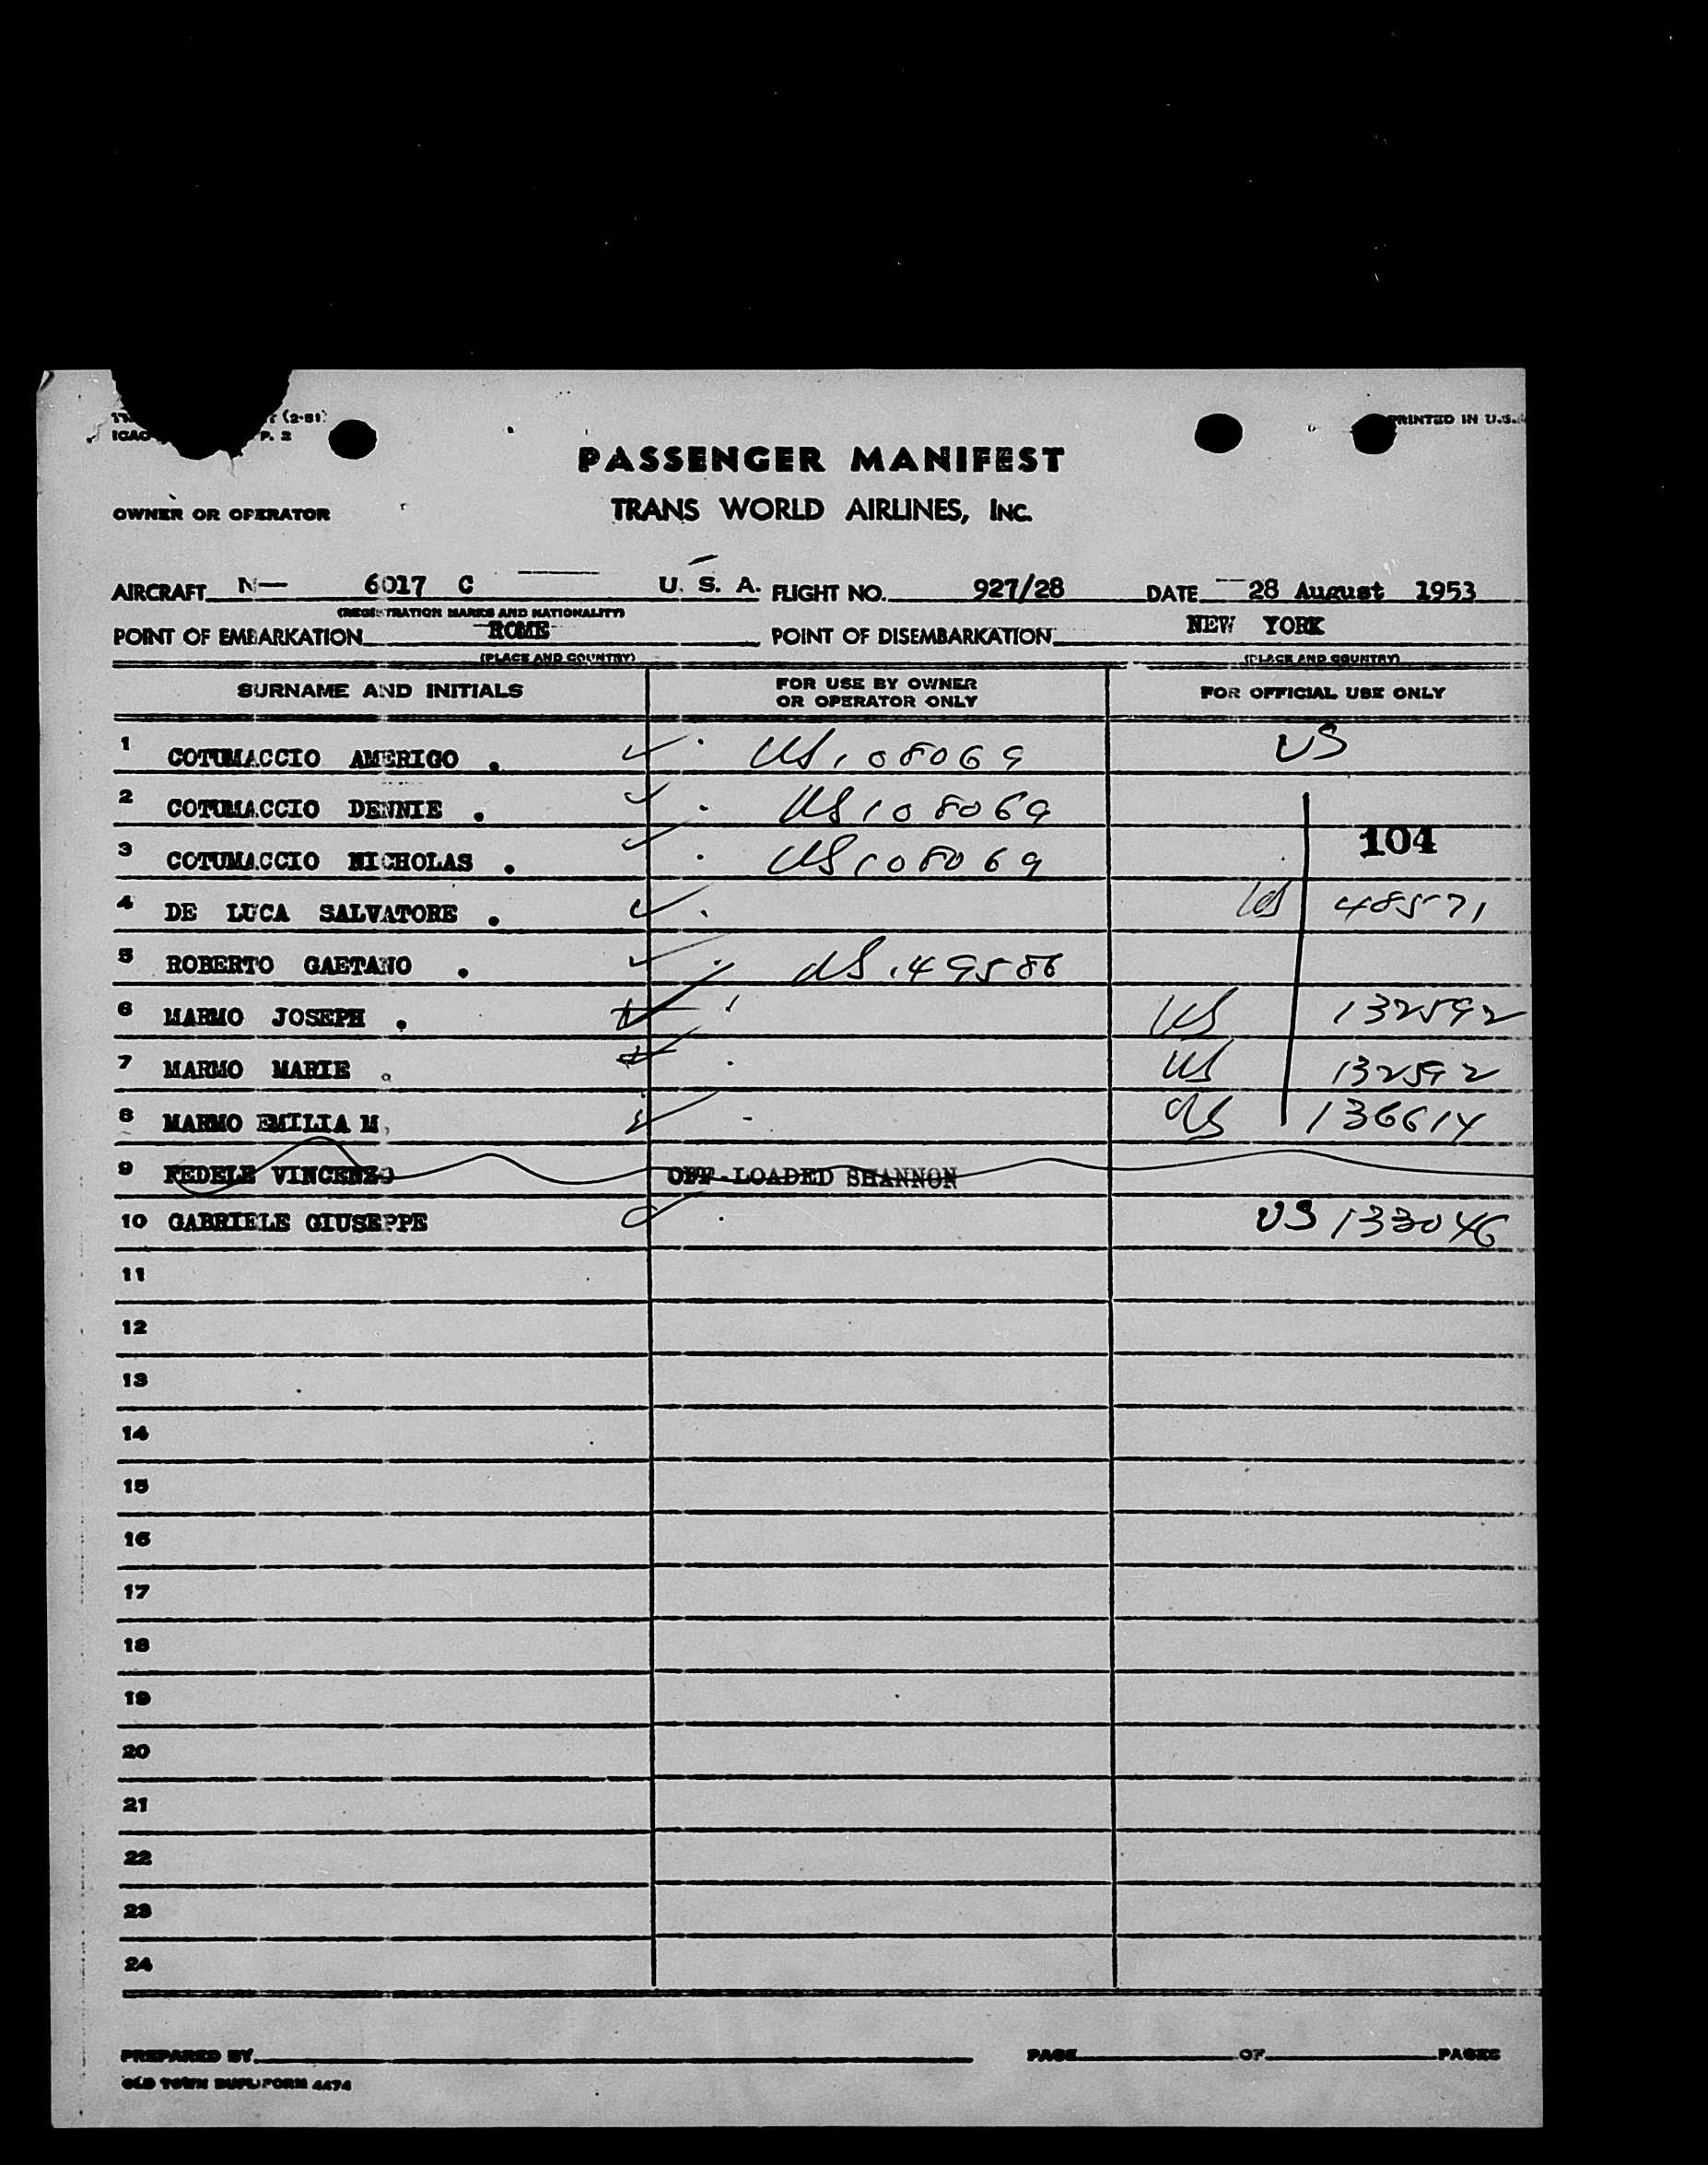 (2-51)
ICAO P. 2
PRINTED IN U.S.
PASSENGER MANIFEST
OWNER OR OPERATOR
TRANS WORLD AIRLINES, INC.
AIRCRAFT N— 6017 C U. S. A. FLIGHT NO. 927/28 DATE 28 August 1953
(REGISTRATION MARKS AND NATIONALITY)
POINT OF EMBARKATION ROME POINT OF DISEMBARKATION NEW YORK
(PLACE AND COUNTRY) (PLACE AND COUNTRY)
SURNAME AND INITIALS FOR USE BY OWNER OR OPERATOR ONLY FOR OFFICIAL USE ONLY
1 COTUMACCIO AMERIGO . US 108069 US
2 COTUMACCIO DENNIE . US 108069
104
3 COTUMACCIO NICHOLAS . US 108069
4 DE LUCA SALVATORE . US 48571
5 ROBERTO GAETANO . US 149586
6 MARMO JOSEPH . US 132592
7 MARMO MARIE . US 132592
8 MARMO EMILIA M. US 136614
9 FEDELE VINCENZO OFF-LOADED SHANNON
10 GABRIELE GIUSEPPE US 133046
11
12
13
14
15
16
17
18
19
20
21
22
23
24
PREPARED BY PAGE OF PAGES
OLD TOWN DUPLIFORM 4474